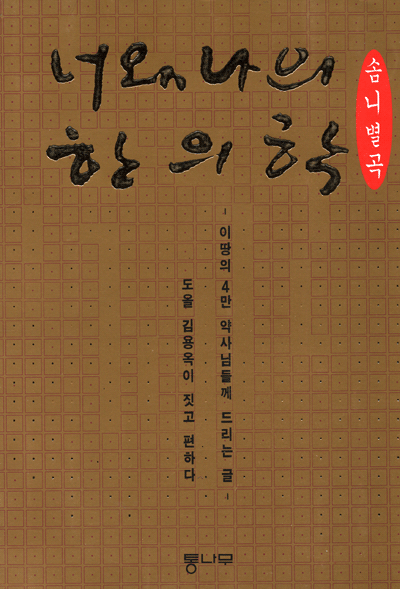 너와 나의
한의학
솜니별곡
- 이땅의 4만 약사님들께 드리는 글 -
도올 김용옥이 짓고 편하다
통나무